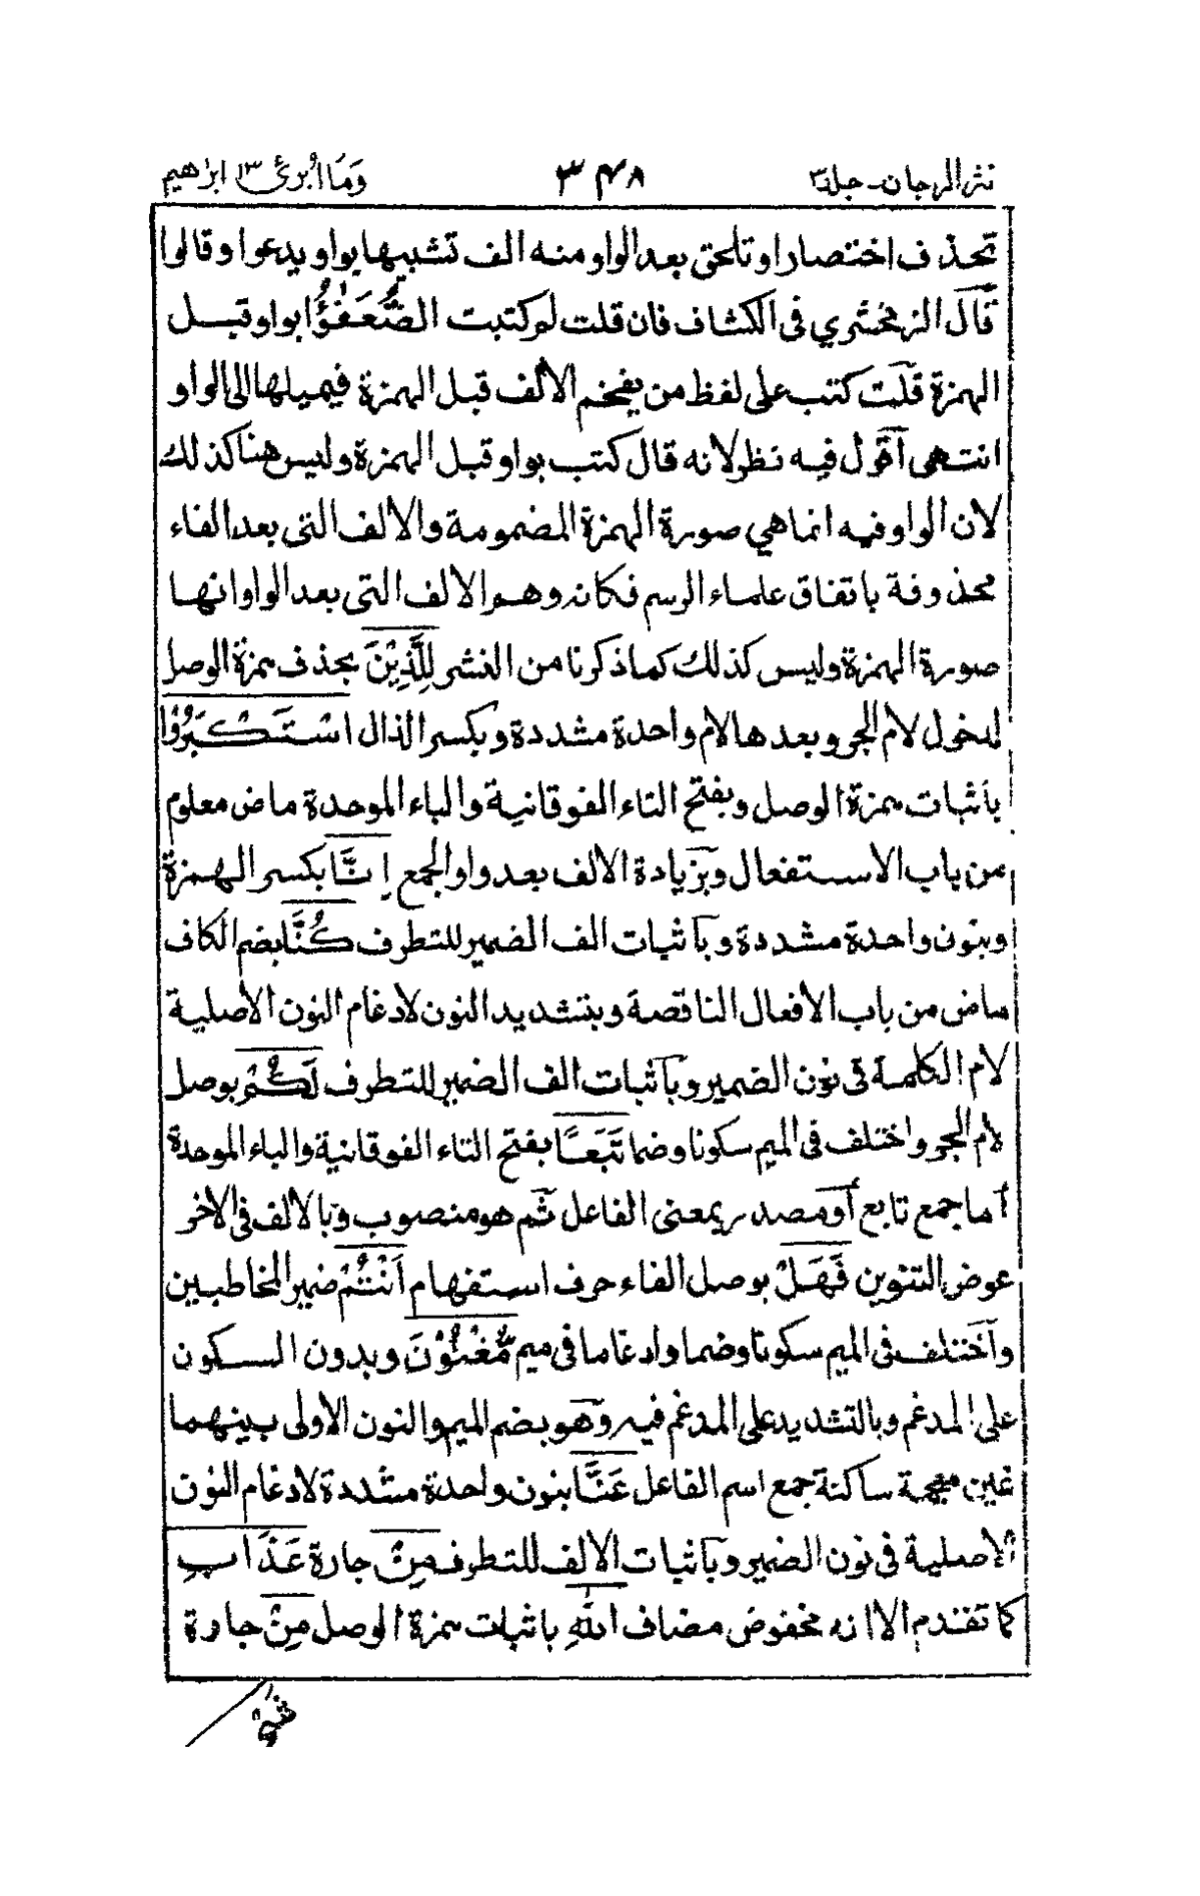 نثر المرجان۔ جلد ۳
۳۴۸
وَمَا أُبرئ ۱۳ ابراهيم
تحذف اختصارا وتلحق بعد الواو منه الف تشبيها بواو يدعوا وقالوا
قال الزمخشري فى الكشاف فان قلت لم كتبت الضُّعَفٰؤُا بواو قبل
الهمزة قلت كتب على لفظ من يفخم الألف قبل الهمزة فيميلها الى الواو
انتهى أقول فيه نظر لانه قال كتب بواو قبل الهمزة وليس هنا كذلك
لان الواو فيه انما هي صورة الهمزة المضمومة والالف التى بعد الفاء
محذوفة باتفاق علماء الرسم فكانه وهم الالف التى بعد الواو انها
صورة الهمزة وليس كذلك كما ذكرنا من النشر لِلَّذِيْنَ بحذف همزة الوصل
لدخول لام الجر وبعدها لام واحدة مشددة وبكسر الذال اسْتَكْبَرُوْا
باثبات همزة الوصل وبفتح التاء الفوقانية والباء الموحدة ماض معلوم
من باب الاستفعال وبزيادة الالف بعد واو الجمع اِنَّا بكسر الهمزة
وبنون واحدة مشددة وبآثبات الف الضمير للتطرف كُنَّا بضم الكاف
ماض من باب الافعال الناقصة وبتشديد النون لادغام النون الأصلية
لام الكلمة فى نون الضمير وبآثبات الف الضمير للتطرف لَكُمْ بوصل
لام الجر واختلف فى الميم سكونا وضما تَبَعًا بفتح التاء الفوقانية والباء الموحدة
أما جمع تابع أو مصدر بمعنى الفاعل ثم هو منصوب وبالالف فى الاخر
عوض التنوين فَهَلْ بوصل الفاء حرف استفهام اَنْتُمْ ضمير المخاطبين
وآختلف فى الميم سكونا وضما وادغاما فى ميم مُّغْنُوْنَ وبدون السكون
على المدغم وبالتشديد على المدغم فيه وهو بضم الميم والنون الاولى بينهما
غين معجمة ساكنة جمع اسم الفاعل عَنَّا بنون واحدة مشددة لادغام النون
الاصلية فى نون الضمير وبآثبات الالف للتطرف مِنْ جارة عَذَابِ
كما تقدم الا انه مخفوض مضاف اللهِ باثبات همزة الوصل مِنْ جارة